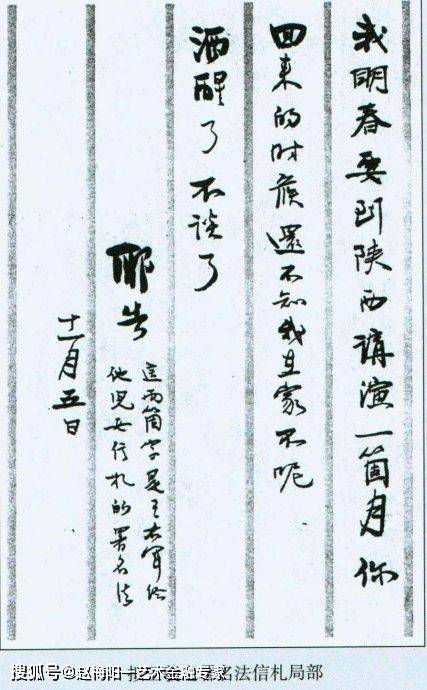 我明春要到陝西講演一箇月你
回来的时候還不知我在家不呢
酒醒了不谈了
耶告
這两箇字是王右軍给
他兒女信札的署名法
十一月五日
搜狐号@赵梅阳—艺术金融专家
名法信札局部